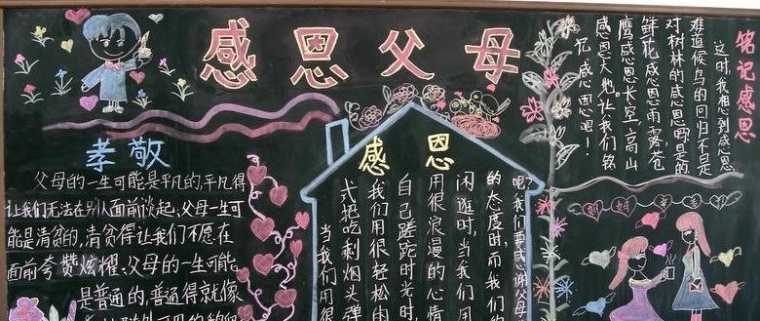 感恩父母
孝敬
父母的一生可能是平凡的,平凡得
让我们无法在别人面前谈起、父母一生可
能是清贫的,清贫得让我们不愿在
面前夸赞炫耀、父母的一生可能
是普通的,普通得就像
感恩
吧?我们要感谢父母
的态度时,而我们的
闲逛时,当我们用
用很浪漫的心情
自己蹉跎时光时,
我们用很轻松的
式把吃剩烟头弹
当我们用很
铭记感恩
这时,我想到感恩
难道候鸟的回归不是
对树林的感恩吗?是的
鲜花感恩雨露,苍
鹰感恩长空,高山
感恩大地。让我们铭
记感恩吧!